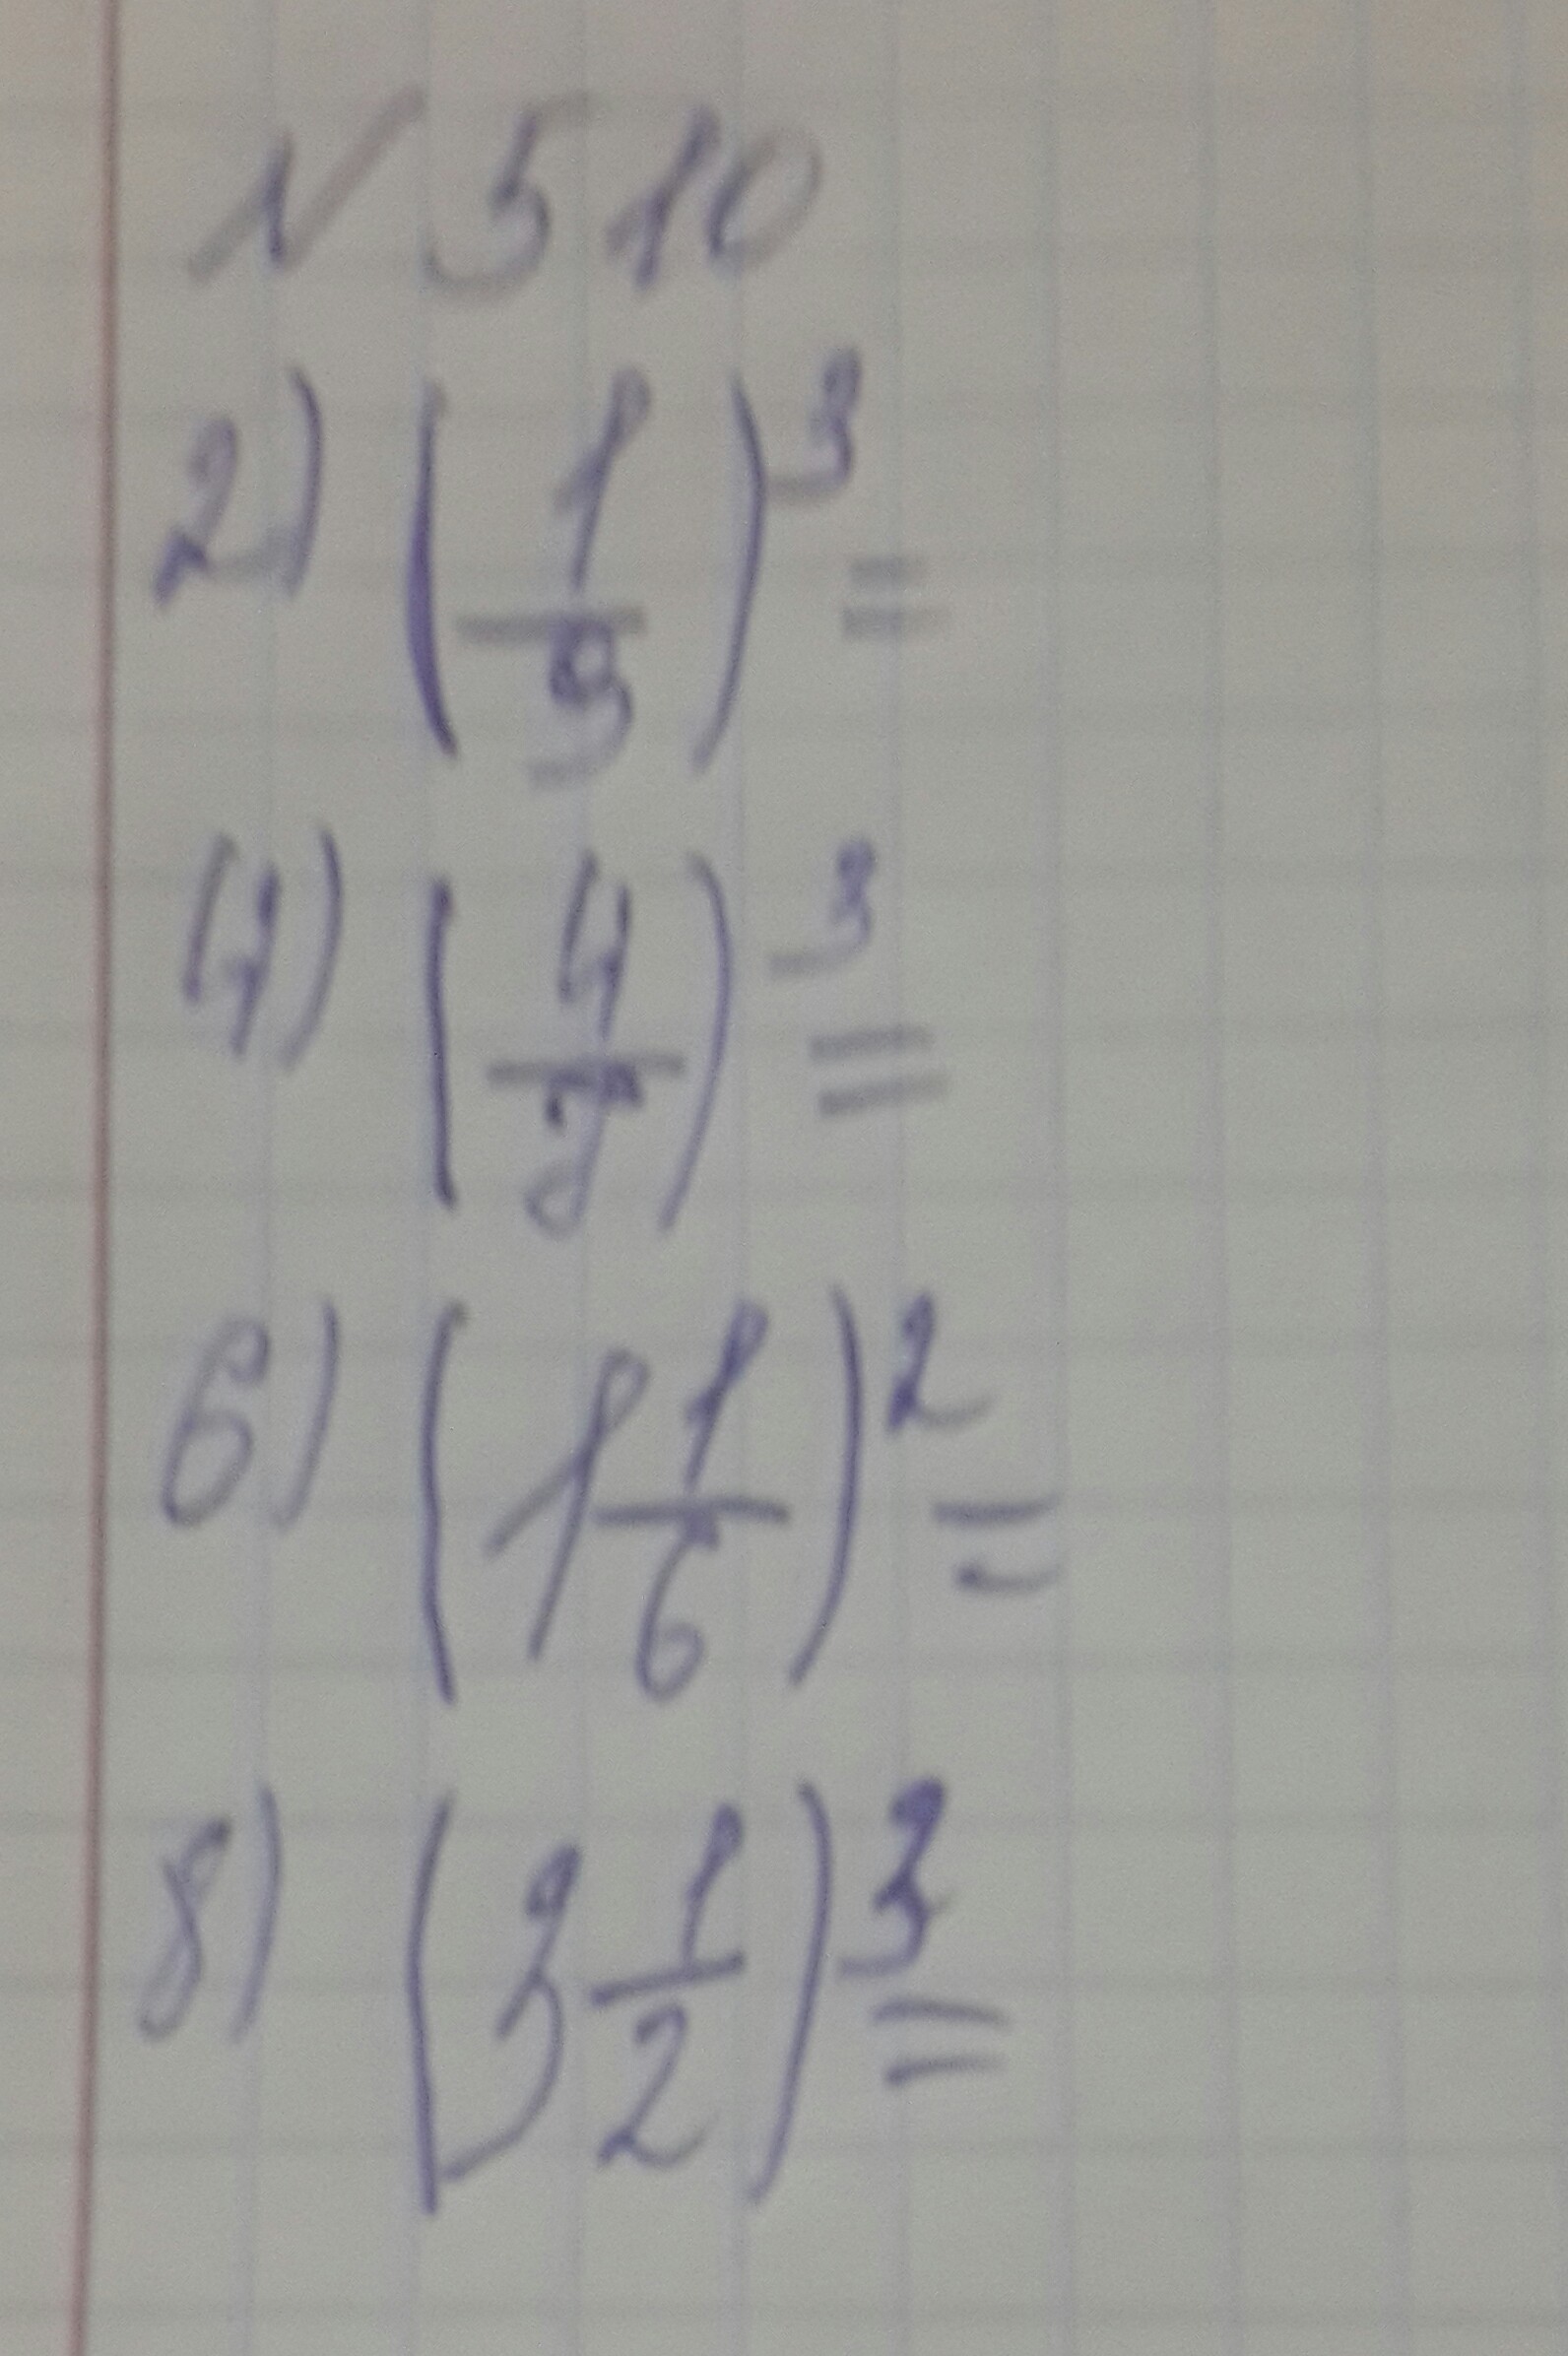 N 510
2) (1/3)³ =
4) (4/ )³ =
6) (1 1/6)² =
8) (3 1/2)³ =